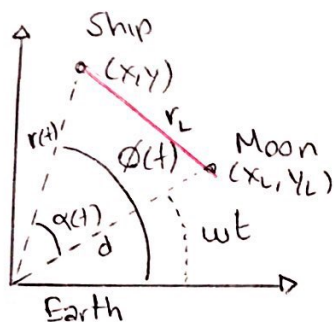 Ship
(x,y)
r(t)
r_L
Moon
ϕ(t)
(x_L, y_L)
α(t)
d
ωt
Earth